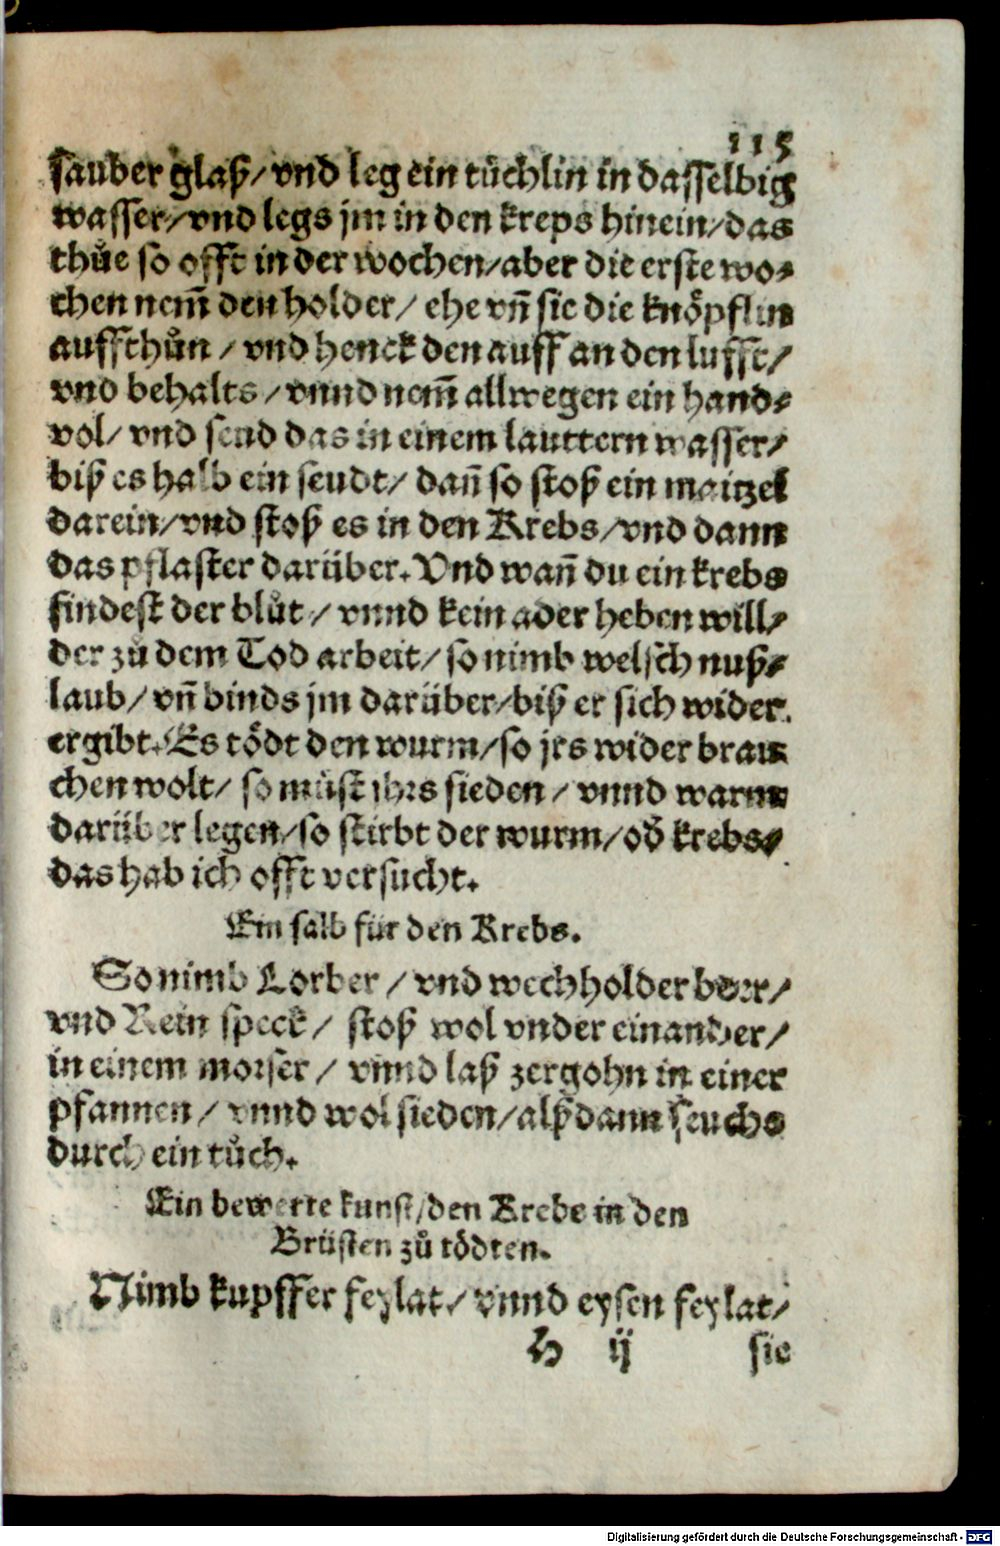 115
sauber glaß/ vnd leg ein tůchlin in dasselbig
wasser/ vnd legs jm in den kreps hinein/ das
thůe so offt in der wochen/ aber die erste wo⸗
chen nem̃ den holder/ ehe vñ sie die knöpflin
auffthůn / vnd henck den auff an den lufft/
vnd behalts / vnnd nem̃ allwegen ein hand⸗
vol/ vnd seud das in einem lauttern wasser/
biß es halb ein seudt/ dañ so stoß ein maitzel
darein/ vnd stoß es in den Krebs/ vnd dann
das pflaster darüber. Vnd wañ du ein krebs
findest der blůt / vnnd kein ader heben will/
der zů dem Tod arbeit/ so nimb welsch nuß⸗
laub/ vñ binds jm darüber/ biß er sich wider.
ergibt. Es tödt den wurm/ so jrs wider brau
chen wolt/ so můst ihrs sieden / vnnd warm
darüber legen/ so stirbt der wurm/ oď krebs/
das hab ich offt versucht.
Ein salb für den Krebs.
So nimb Lorber / vnd wechholder beer/
vnd Rein speck / stoß wol vnder einander/
in einem morser / vnnd laß zergohn in einer
pfannen / vnnd wol sieden/ alßdann seuchs
durch ein tůch.
Ein bewerte kunst/ den Krebs in den
Brüsten zů tödten.
Nimb kupffer feylat/ vnnd eysen feylat/
H ij sie
Digitalisierung gefördert durch die Deutsche Forschungsgemeinschaft - DFG